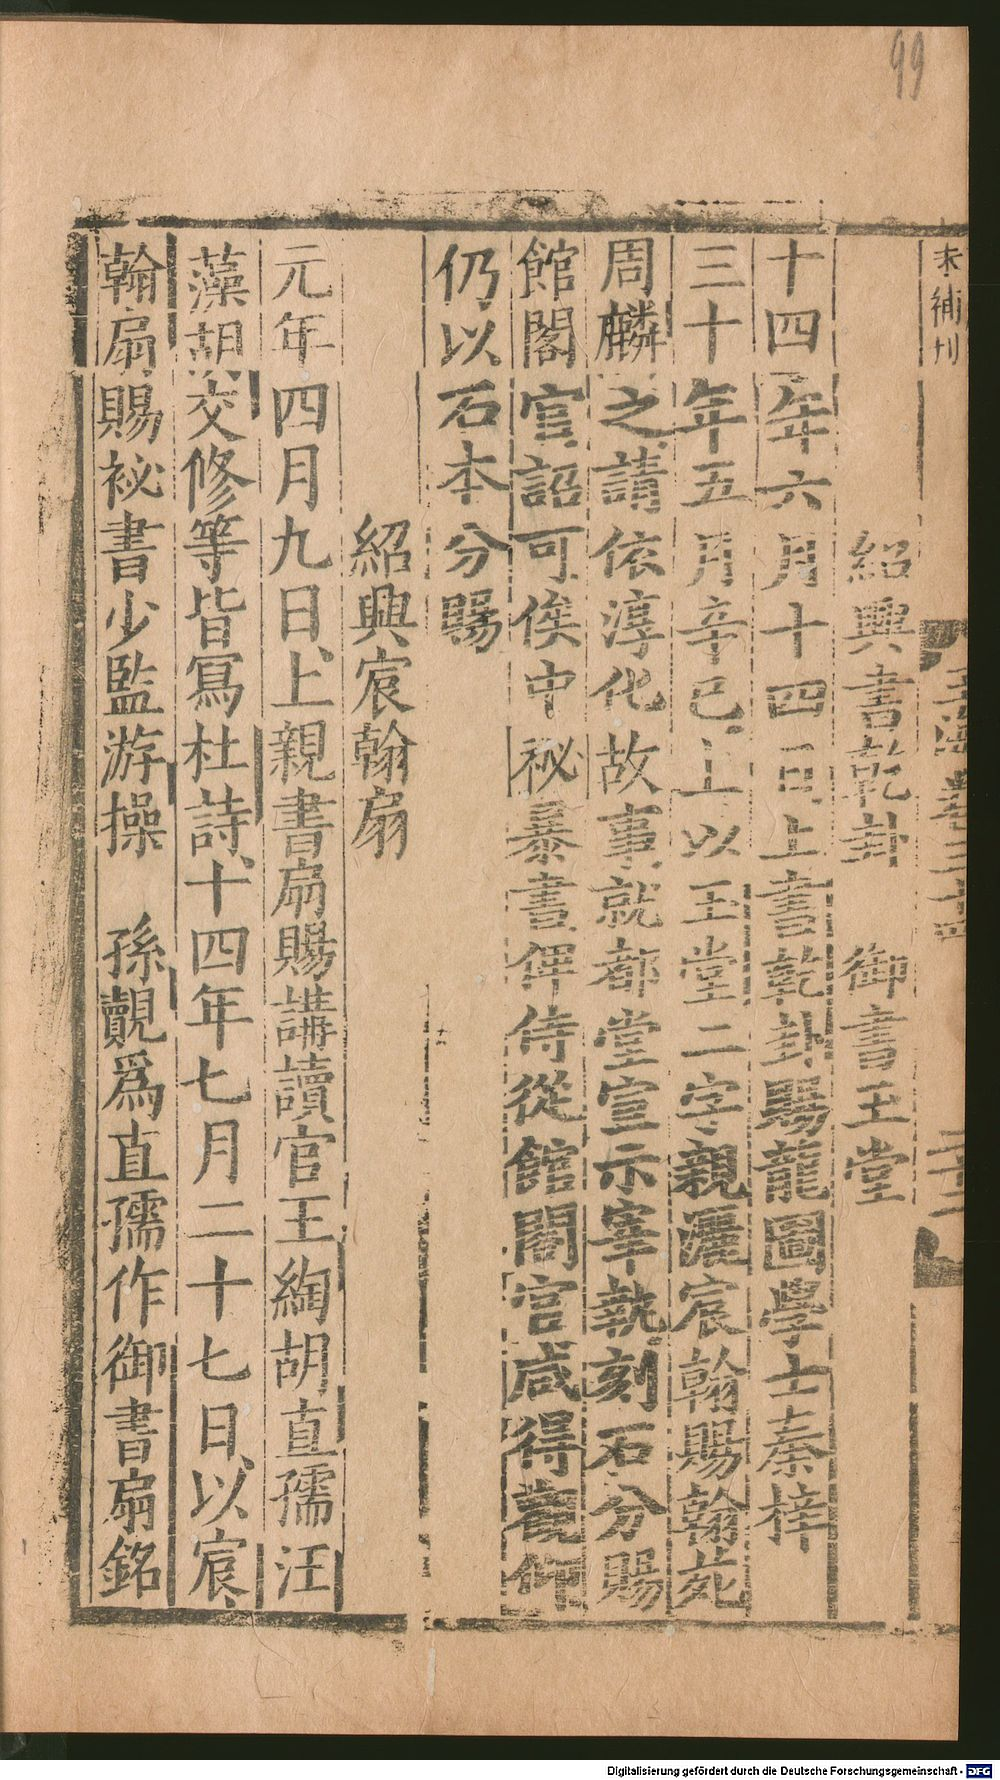 99
未補刊
玉海卷三十四
二十二
紹興書乾卦 御書玉堂
十四年六月十四日上書乾卦賜龍圖學士秦梓
三十年五月辛巳上以玉堂二字親灑宸翰賜翰苑
周麟之請依淳化故事就都堂宣示宰執刻石分賜
館閣官詔可俟中祕暴書俾侍從館閣官咸得觀仰
仍以石本分賜
紹興宸翰扇
元年四月九日上親書扇賜講讀官王綯胡直孺汪
藻胡交修等皆寫杜詩十四年七月二十七日以宸
翰扇賜祕書少監游操 孫覿爲直孺作御書扇銘
Digitalisierung gefördert durch die Deutsche Forschungsgemeinschaft - DFG